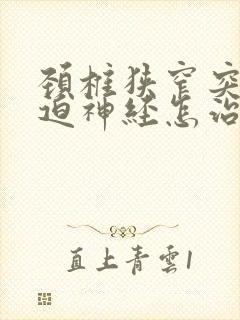 颈柱狭窄突
迫神经怎治
直上青雲1